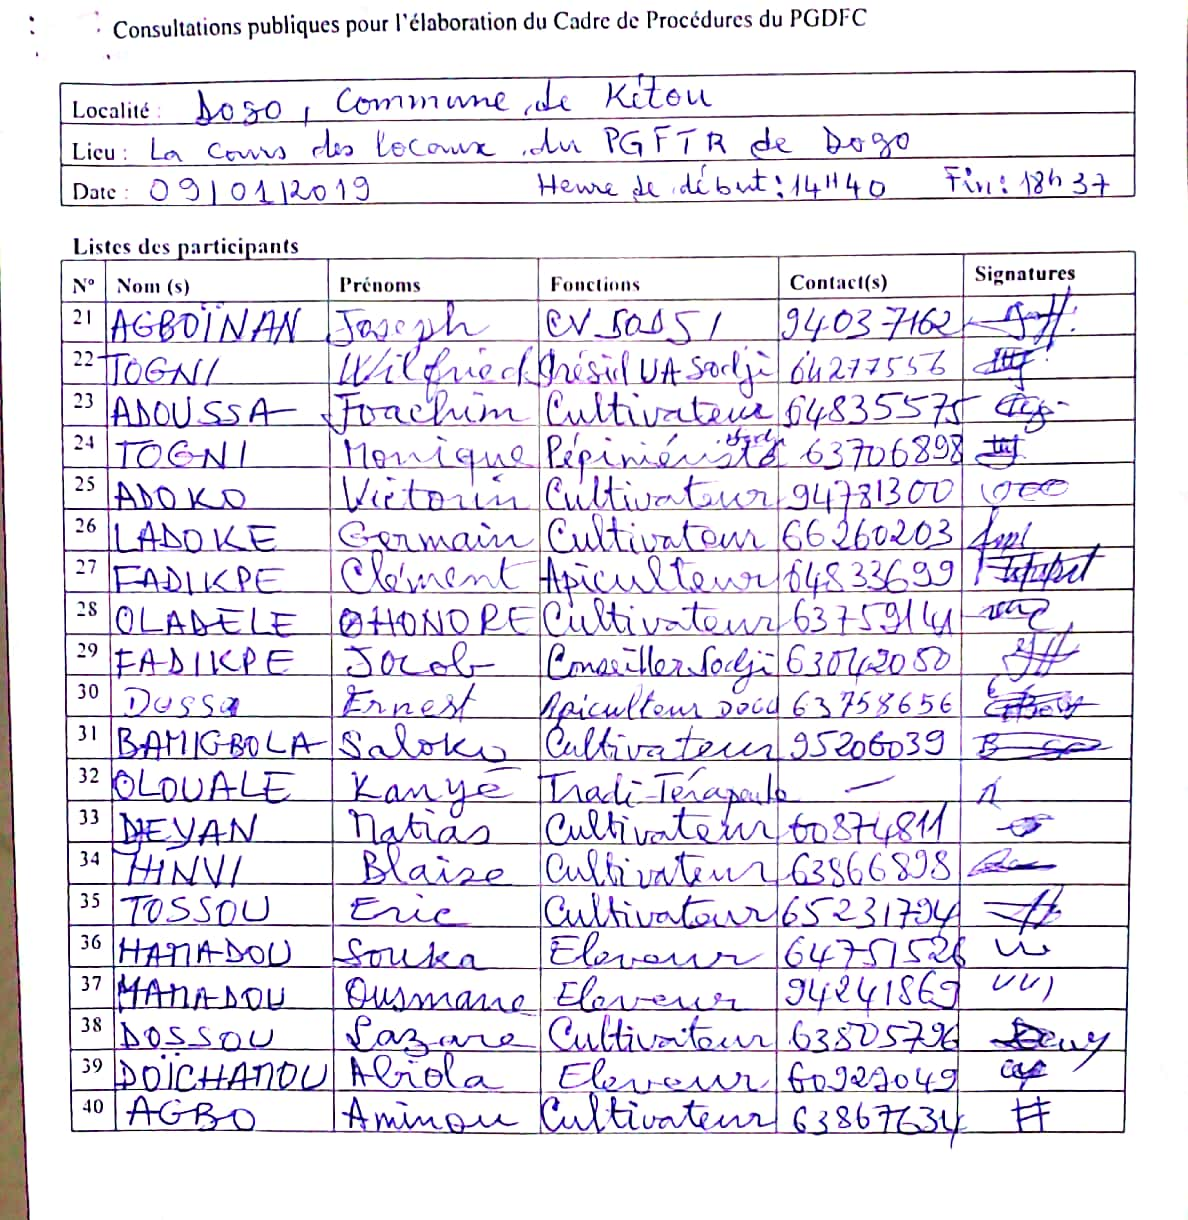 Consultations publiques pour l'élaboration du Cadre de Procédures du PGDFC
Localité : Dogo, Commune de Kétou
Lieu : La cours des locaux du PGFTR de Dogo
Date : 09/01/2019 Heure de début : 14H40 Fin : 18h37
Listes des participants
N° Nom (s) Prénoms Fonctions Contact(s) Signatures
21 AGBOÏNAN Joseph 94037162
22 TOGNI Wilfried Présid UA Sodji 64277556
23 ADOUSSA Joachim Cultivateur 64835575
24 TOGNI Monique Pépiniériste 63706898
25 ADOKO Victorin Cultivateur 94781300
26 LADOKE Germain Cultivateur 66260203
27 FADIKPE Clément Apiculteur 64833699
28 OLADELE HONORE Cultivateur 63759141
29 FADIKPE Jacob Conseiller Sodji 63042050
30 Dossa Ernest Apiculteur 63758656
31 BAMIGBOLA Saloko Cultivateur 95206039
32 OLOUALE Kanyé Tradi-Térapeute —
33 DEYAN Matias Cultivateur 60874811
34 HINVI Blaise Cultivateur 63866898
35 TOSSOU Eric Cultivateur 65231794
36 HAMADOU Souka Eleveur 64751526
37 MAMADOU Ousmane Eleveur 94241869
38 DOSSOU Lazare Cultivateur 63805796
39 DOÏCHAMOU Abiola Eleveur 60927049
40 AGBO Aminou Cultivateur 63867634